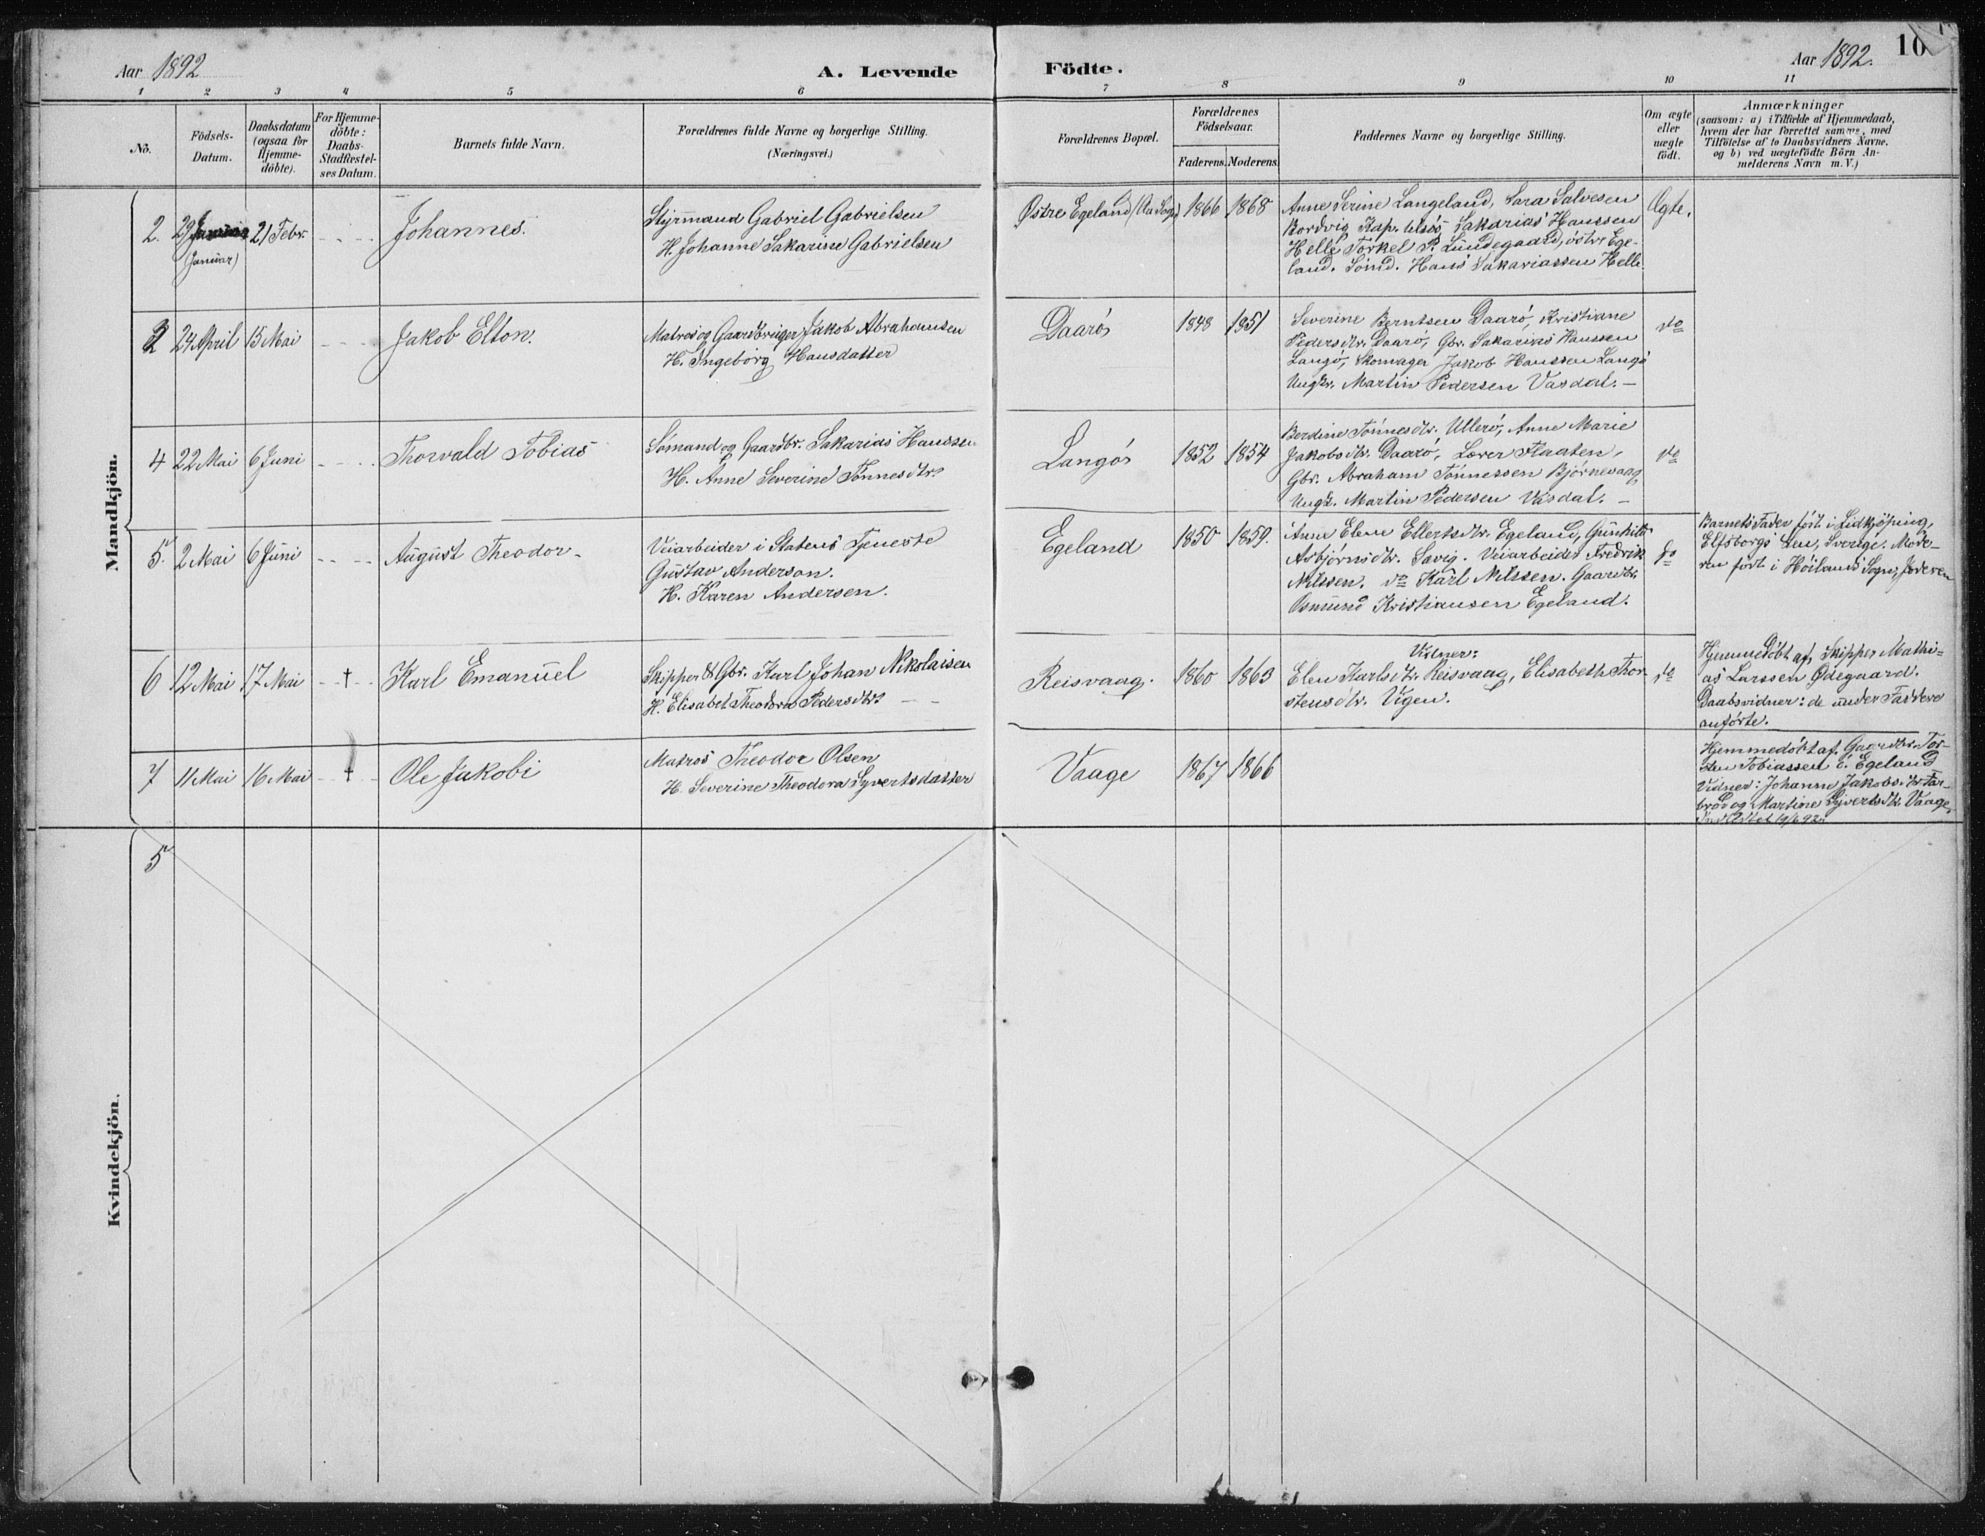 Aar 1892
A. Levende
Födte.
Aar 1892.
10
1 2 3 4 5 6 7 8 9 10 11
No.
Födsels-
Datum.
Daabsdatum
(ogsaa for
Hjemme-
döbte).
For Hjemme-
döbte:
Daabs-
Stadfæstel-
ses Datum.
Barnets fulde Navn.
Forældrenes fulde Navne og borgerlige Stilling.
(Næringsvei.)
Forældrenes Bopæl.
Forældrenes
Födselsaar.
Faderens. Moderens.
Faddernes Navne og borgerlige Stilling.
Om ægte
eller
uægte
födt.
Anmærkninger
(saasom: a) i Tilfælde af Hjemmedaab,
hvem der har forrettet samme, med
Tilföielse af to Daabsvidners Navne,
og b) ved uægtefödte Börn An-
melderens Navn m. V.)
Mandkjön.
2. 29 21 Febr.
(Januar)
Johannes.
Styrmand Gabriel Gabrielsen
H. Johanne Sakarine Gabrielsen
Østre Egeland 1866 1868
Anne Serine Langeland, Sara Salvesen
Bordvig Sakarias Hanssen
Helle Torkel P. Lundegaard, östre Ege-
land. Sömd. Hans Sakariassen Helle.
Ægte.
2 24 April 15 Mai
Jakob Elton.
Matros og Gaardbruger Jakob Abrahamsen
H. Ingeborg Hansdatter
Daarö 1848 1851
Severine Berntsen Daarö, Kristiane
Pedersdtr. Daarö, Gbr. Sakarias Hanssen
Langö, Skomager Jakob Hanssen Langö
Ungkr. Martin Pedersen Vasdal. —
do
4 22 Mai 6 Juni
Thorvald Tobias
Sömand og Gaardbr. Sakarias Hanssen
H. Anne Severine Tönnesdtr.
Langö 1852 1854
Berdine Tönnesdtr. Ullerö, Anne Marie
Jakobsdtr. Daarö, Lærer Staaten,
Gbr. Abraham Tönnessen Björnevaag
Ungk. Martin Pedersen Vasdal. —
do
5. 2 Mai 6 Juni
August Theodor.
Veiarbeider i Statens Tjeneste
Gustav Anderson.
H. Karen Andersen.
Egeland 1850 1859.
Anne Elen Ellertsdtr. Egeland, Gunhild
Asbjörnsdtr. Savig. Veiarbeider Fredrik
Nilssen. do Karl Nilssen. Gaardbr.
Osmund Kristiansen Egeland.
do
Barnets Fader föst i Lidkjöping,
Elfsborgs Len, Sverige. Mode-
ren födt i Höilands Sogn, Jæderen
6 12 Mai 17 Mai †
Karl Emanuel
Skipper & Gbr. Karl Johan Nikolaisen
H. Elisabet Theodora Pedersdtr.
Reisvaag. 1860 1863
Vidner:
Elen Karlsdtr. Reisvaag, Elisabeth Thor-
stensdtr. Vigen.
do
Hjemmedöbt af Skipper Mathi-
as Larssen Ødegaard.
Daabsvidner: de under Faddere
anförte.
7 11 Mai 16 Mai †
Ole Jakobi
Matros Theodor Olsen
H. Severine Theodora Syvertsdatter
Vaage 1867 1866
Hjemmedöbt af Gaardbr. Tor-
sten Tobiassen i Egeland
Vidner: Johanne Jakobsdtr. Far-
brod og Martine Syvertsdtr. Vaage.
19/6 92.
Kvindekjön.
5